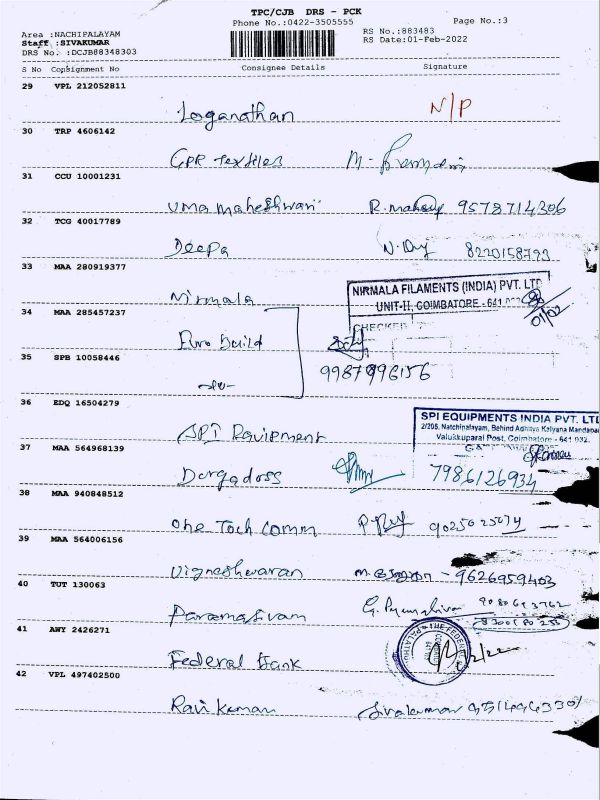 TPC/CJB DRS - PCK
Phone No.:0422-3505555
Page No.:3
Area :NACHIPALAYAM
Staff :SIVAKUMAR
DRS No. :DCJB88348303
RS No.:883483
RS Date:01-Feb-2022
S No Consignment No Consignee Details Signature
29 VPL 212052811
Loganathan N/P
30 TRP 4606142
GPR Textiles
31 CCU 10001231
Uma maheshwari 9578714306
32 TCG 40017789
Deepa 8220158793
33 MAA 280919377
Nirmala
NIRMALA FILAMENTS (INDIA) PVT. LTD
UNIT-II, COIMBATORE - 641
CHECKED
01/02
34 MAA 285457237
Euro Build
35 SPB 10058446
9987996156
36 EDQ 16504279
SPI EQUIPMENTS INDIA PVT. LTD
2/205, Natchipalayam, Behind Adhitya Kalyana Mandapam
Valukkuparai Post, Coimbatore - 641 032.
37 MAA 564968139
Durgadoss 7986126934
38 MAA 940848512
One Tech Comm 9025025074
39 MAA 564006156
Vigneshwaran 9626959403
40 TUT 130063
Paramasivam
41 ANY 2426271
Federal Bank
42 VPL 497402500
Ravi Kumar Sivakumar